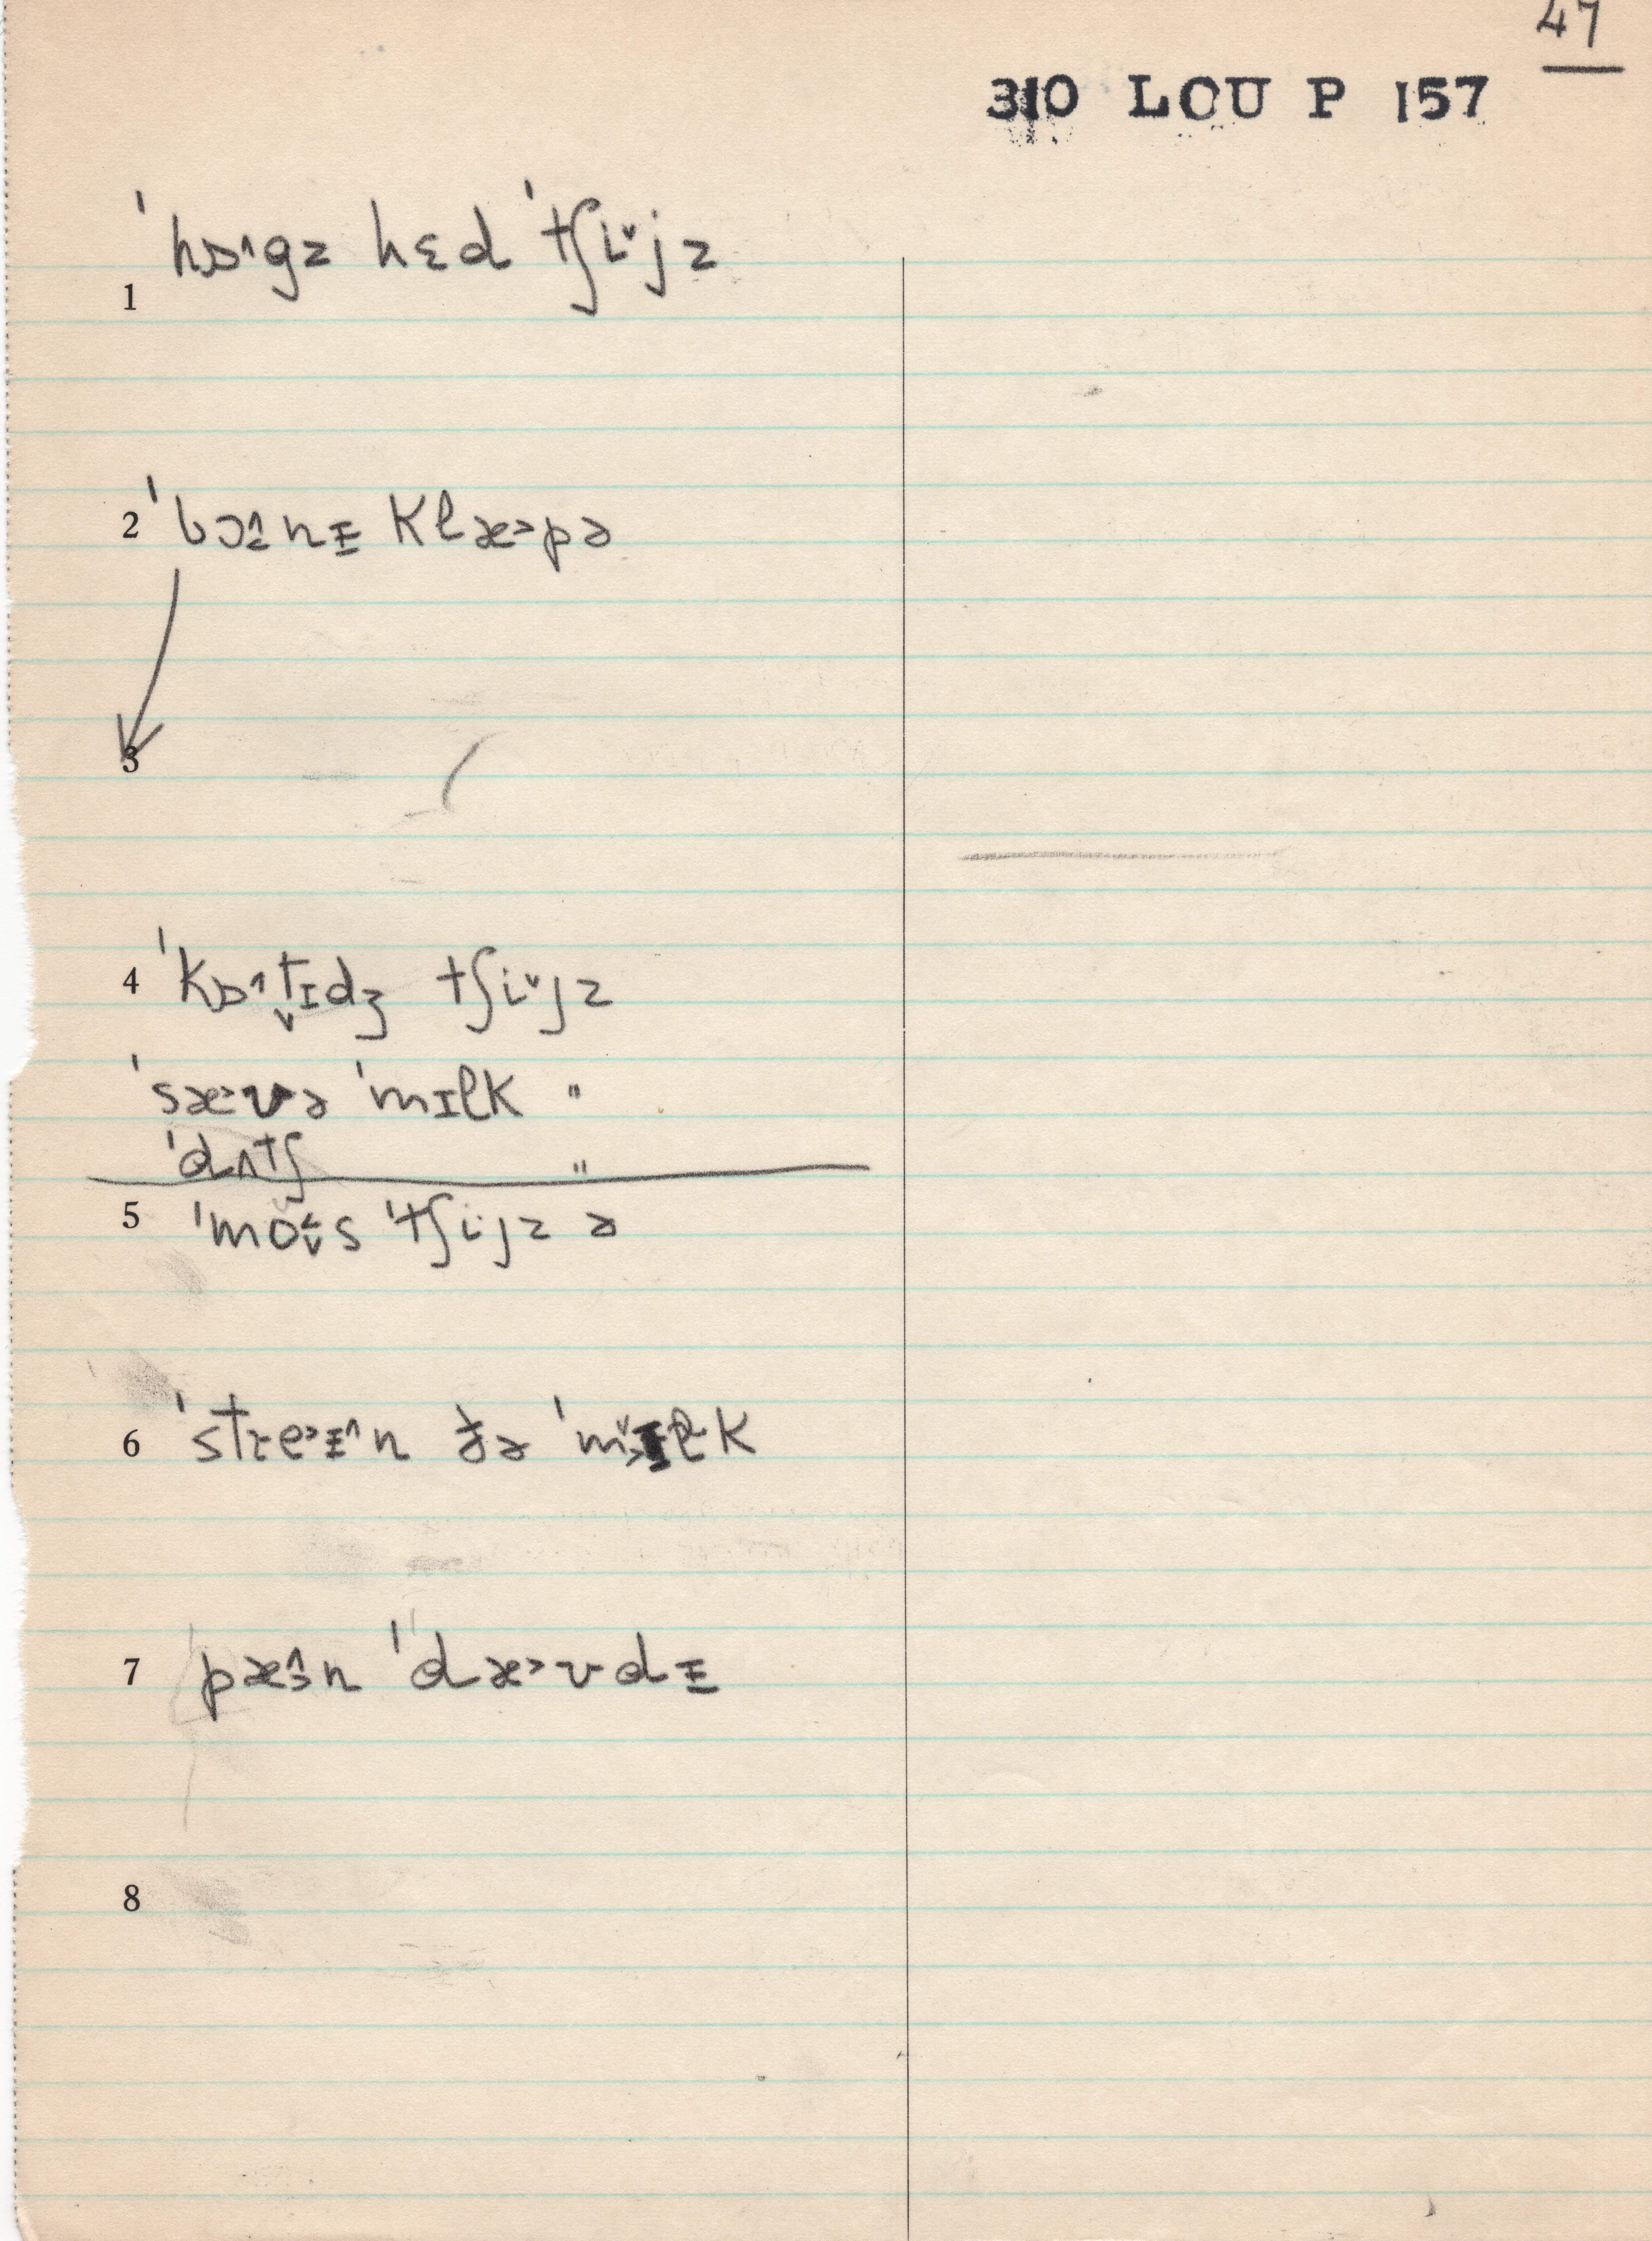 47
310 LOU P 157
1 ˈhɒ˄gz hɛd ˈtʃi˅jz
2 ˈbɔ˄nɪ klæ˃pə
3
4 ˈkɒ˄t̬ɪdʒ tʃi˅jz
ˈsæ˃ʊə ˈmɪlk "
ˈdʌtʃ "
5 ˈmo˂ʊs ˈtʃijz ə
6 ˈstre˃ɪ˄n ðə ˈmɪlk
7 pæ˄n ˈdæ˃ʊdɪ
8